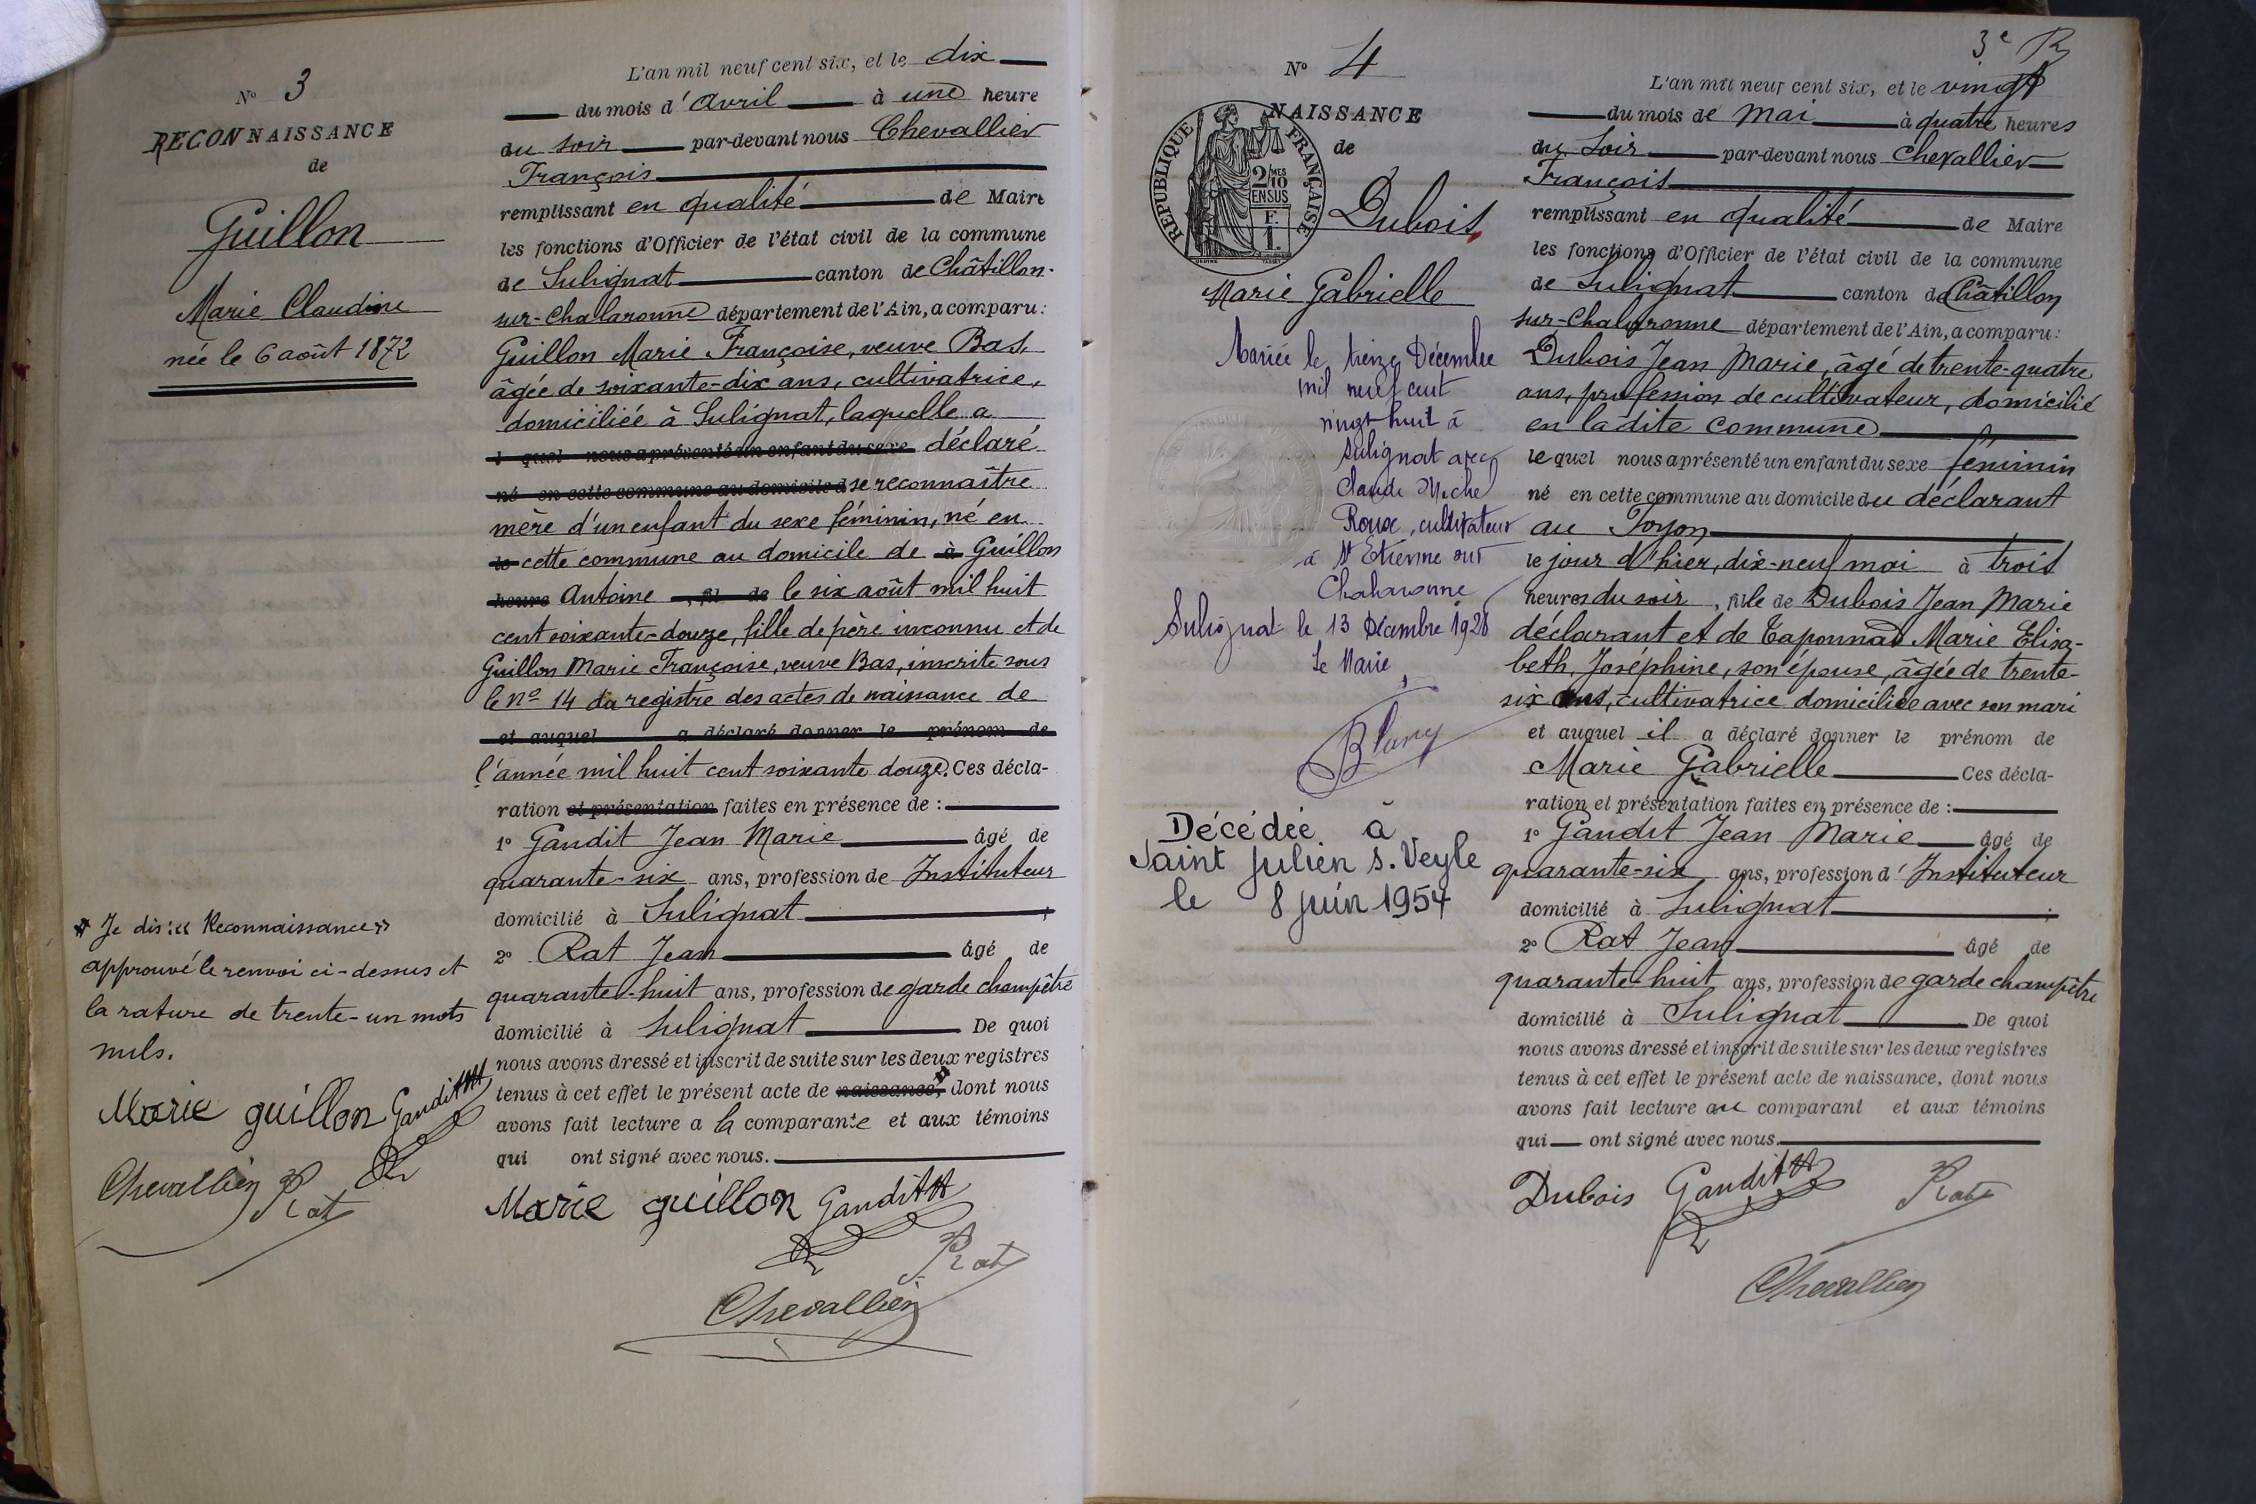 N° 3
RECONNAISSANCE
de
Guillon
Marie Claudine
née le 6 août 1872
L'an mil neuf cent six, et le dix
du mois d'avril à une heure
du soir par-devant nous Chevallier
François
remplissant en qualité de Maire
les fonctions d'Officier de l'état civil de la commune
de Sulignat canton de Châtillon-
sur-Chalaronne département de l'Ain, a comparu :
Guillon Marie Françoise, veuve Bas,
âgée de soixante-dix ans, cultivatrice,
domiciliée à Sulignat, laquelle a
l quel nous a présenté un enfant du sexe déclaré
né en cette commune au domicile d se reconnaître
mère d'un enfant du sexe féminin, né en
le cette commune au domicile de à Guillon
heure Antoine , fil de le six août mil huit
cent soixante-douze, fille de père inconnu et de
Guillon Marie Françoise, veuve Bas, inscrite sous
le n° 14 du registre des actes de naissance de
et auquel a déclaré donner le prénom de
l'année mil huit cent soixante douze. Ces décla-
ration et présentation faites en présence de :
1° Gandit Jean Marie âgé de
quarante-six ans, profession de Instituteur
domicilié à Sulignat ;
2° Rat Jean âgé de
quarante-huit ans, profession de garde champêtre
domicilié à Sulignat De quoi
nous avons dressé et inscrit de suite sur les deux registres
tenus à cet effet le présent acte de naissance, dont nous
avons fait lecture a la comparante et aux témoins
qui ont signé avec nous.
Marie guillon Gandit
Rat
Chevallier
Je dis : « Reconnaissance »
approuvé le renvoi ci-dessus et
la rature de trente-un mots
nuls.
Marie guillon Gandit
Chevallier Rat
3e R
N° 4
NAISSANCE
de
RÉPUBLIQUE FRANÇAISE
2/10 MES
EN SUS
F.
1.
Dubois
Marie Gabrielle
Mariée le treize Décembre
mil neuf cent
vingt-huit à
Sulignat avec
Claude Michel
Roux, cultivateur
à St Etienne sur
Chalaronne
Sulignat le 13 Décembre 1928
Le Maire,
Blany
Décédée à
Saint Julien s. Veyle
le 8 juin 1954
L'an mil neuf cent six, et le vingt
du mois de mai à quatre heures
du soir par-devant nous Chevallier
François
remplissant en qualité de Maire
les fonctions d'Officier de l'état civil de la commune
de Sulignat canton de Châtillon
sur-Chalaronne département de l'Ain, a comparu :
Dubois Jean Marie, âgé de trente-quatre
ans, profession de cultivateur, domicilié
en la dite commune
lequel nous a présenté un enfant du sexe féminin
né en cette commune au domicile du déclarant
au Joyon
le jour d'hier, dix-neuf mai à trois
heures du soir, fille de Dubois Jean Marie
déclarant et de Taponnad Marie Elisa-
beth, Joséphine, son épouse, âgée de trente-
six ans, cultivatrice domiciliée avec son mari
et auquel il a déclaré donner le prénom de
Marie Gabrielle Ces décla-
ration et présentation faites en présence de :
1° Gandit Jean Marie âgé de
quarante-six ans, profession d'Instituteur
domicilié à Sulignat ;
2° Rat Jean âgé de
quarante-huit ans, profession de garde champêtre
domicilié à Sulignat De quoi
nous avons dressé et inscrit de suite sur les deux registres
tenus à cet effet le présent acte de naissance, dont nous
avons fait lecture au comparant et aux témoins
qui ont signé avec nous.
Dubois Gandit Rat
Chevallier